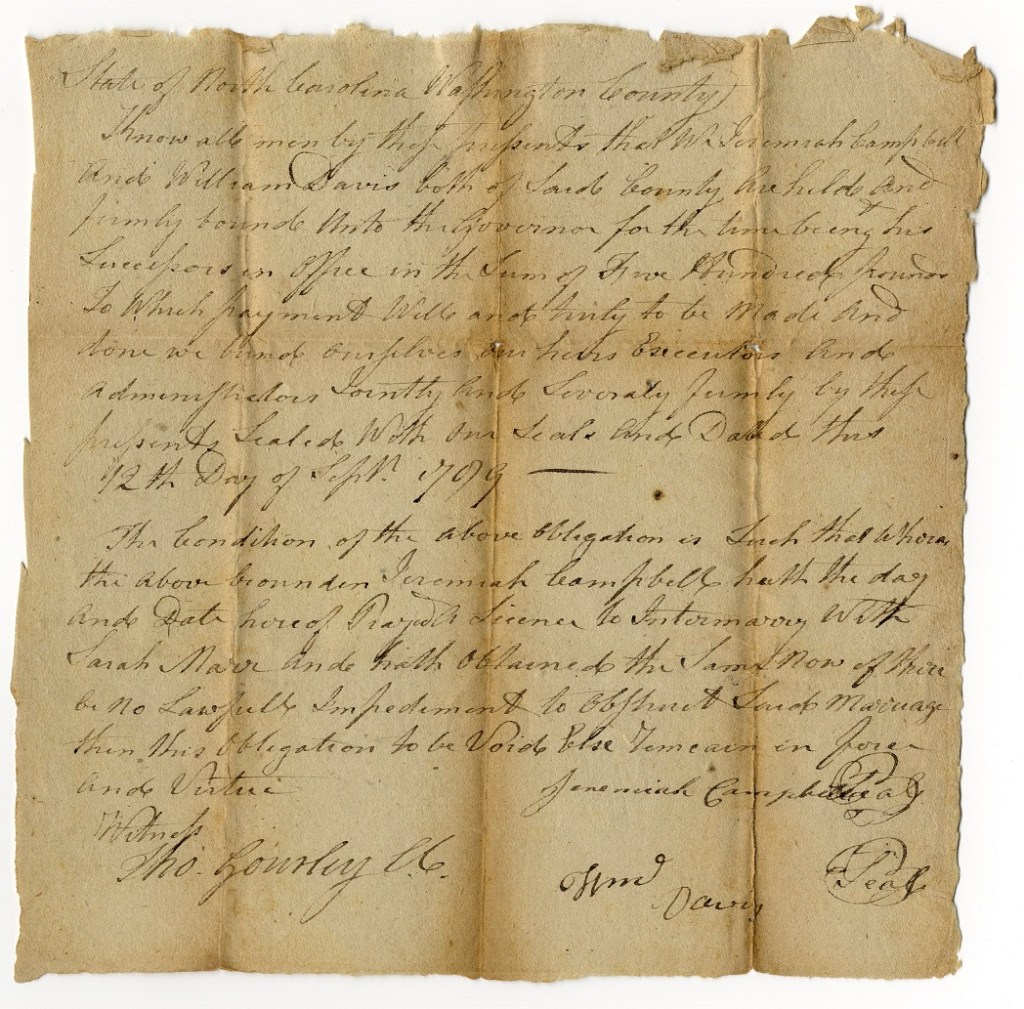 State of North Carolina Washington County
Know all men by these presents that We Jeremiah Campbell
And William Davis both of Said County Are held And
firmly bound Unto the Governor for the time being & his
Successors in Office in the Sum of Five Hundred pounds
To Which payment Well and truly to be Made And
done we bind ourselves our heirs Executors And
Administrators Jointly And Severaly firmly by these
presents Sealed With Our Seals And Dated this
12th Day of Sept. 1789
The Condition of the above Obligation is Such that Whereas
the above bounden Jeremiah Campbell hath the day
And Date hereof Prayed A Licence to Intermarry With
Sarah Marr And hath Obtained the Same Now if there
be No Lawfull Impediment to Obstruct Said Marriage
then this Obligation to be Void Else Remain in force
And Virtue
Jeremiah Campbell Seal
Witness
Tho. Gourley C.C.
Wm Davis Seal